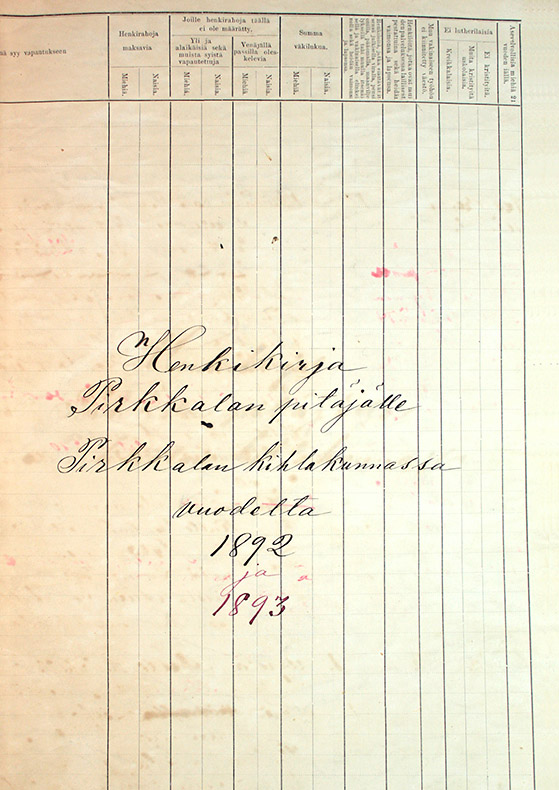 syy vapautukseen
Henkirahoja
maksavia
Miehiä.
Naisia.
Joille henkirahoja täällä
ei ole määrätty,
Yli ja
alaikäisiä sekä
muista syistä
vapautettuja
Miehiä.
Naisia.
Venäjällä
passilla oles-
kelevia
Miehiä.
Naisia.
Summa
väkilukua.
Miehiä.
Naisia.
Muu vakinaiseen työhön
ei kummitettu väestö.
Ei lutherilaisia
Kreikkalaisia.
Muita kristityitä
uskolaisia.
Ei kristityitä.
Asevelvollisia miehiä 21
vuoden iällä.
Henkikirja
Pirkkalan pitäjälle
Pirkkalan kihlakunnassa
vuodelta
1892
ja
1893